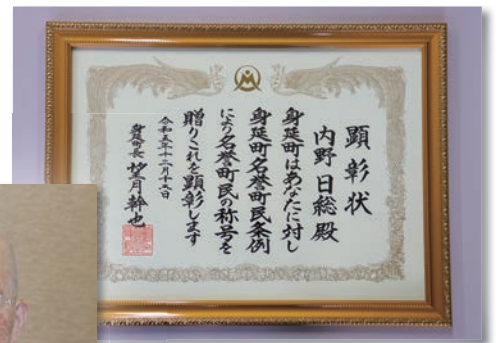 顕彰状
内野日総殿
身延町はあなたに対し
身延町名誉町民条例
により名誉町民の称号を
贈りこれを顕彰します
令和五年十二月十五日
身延町長 望月幹也